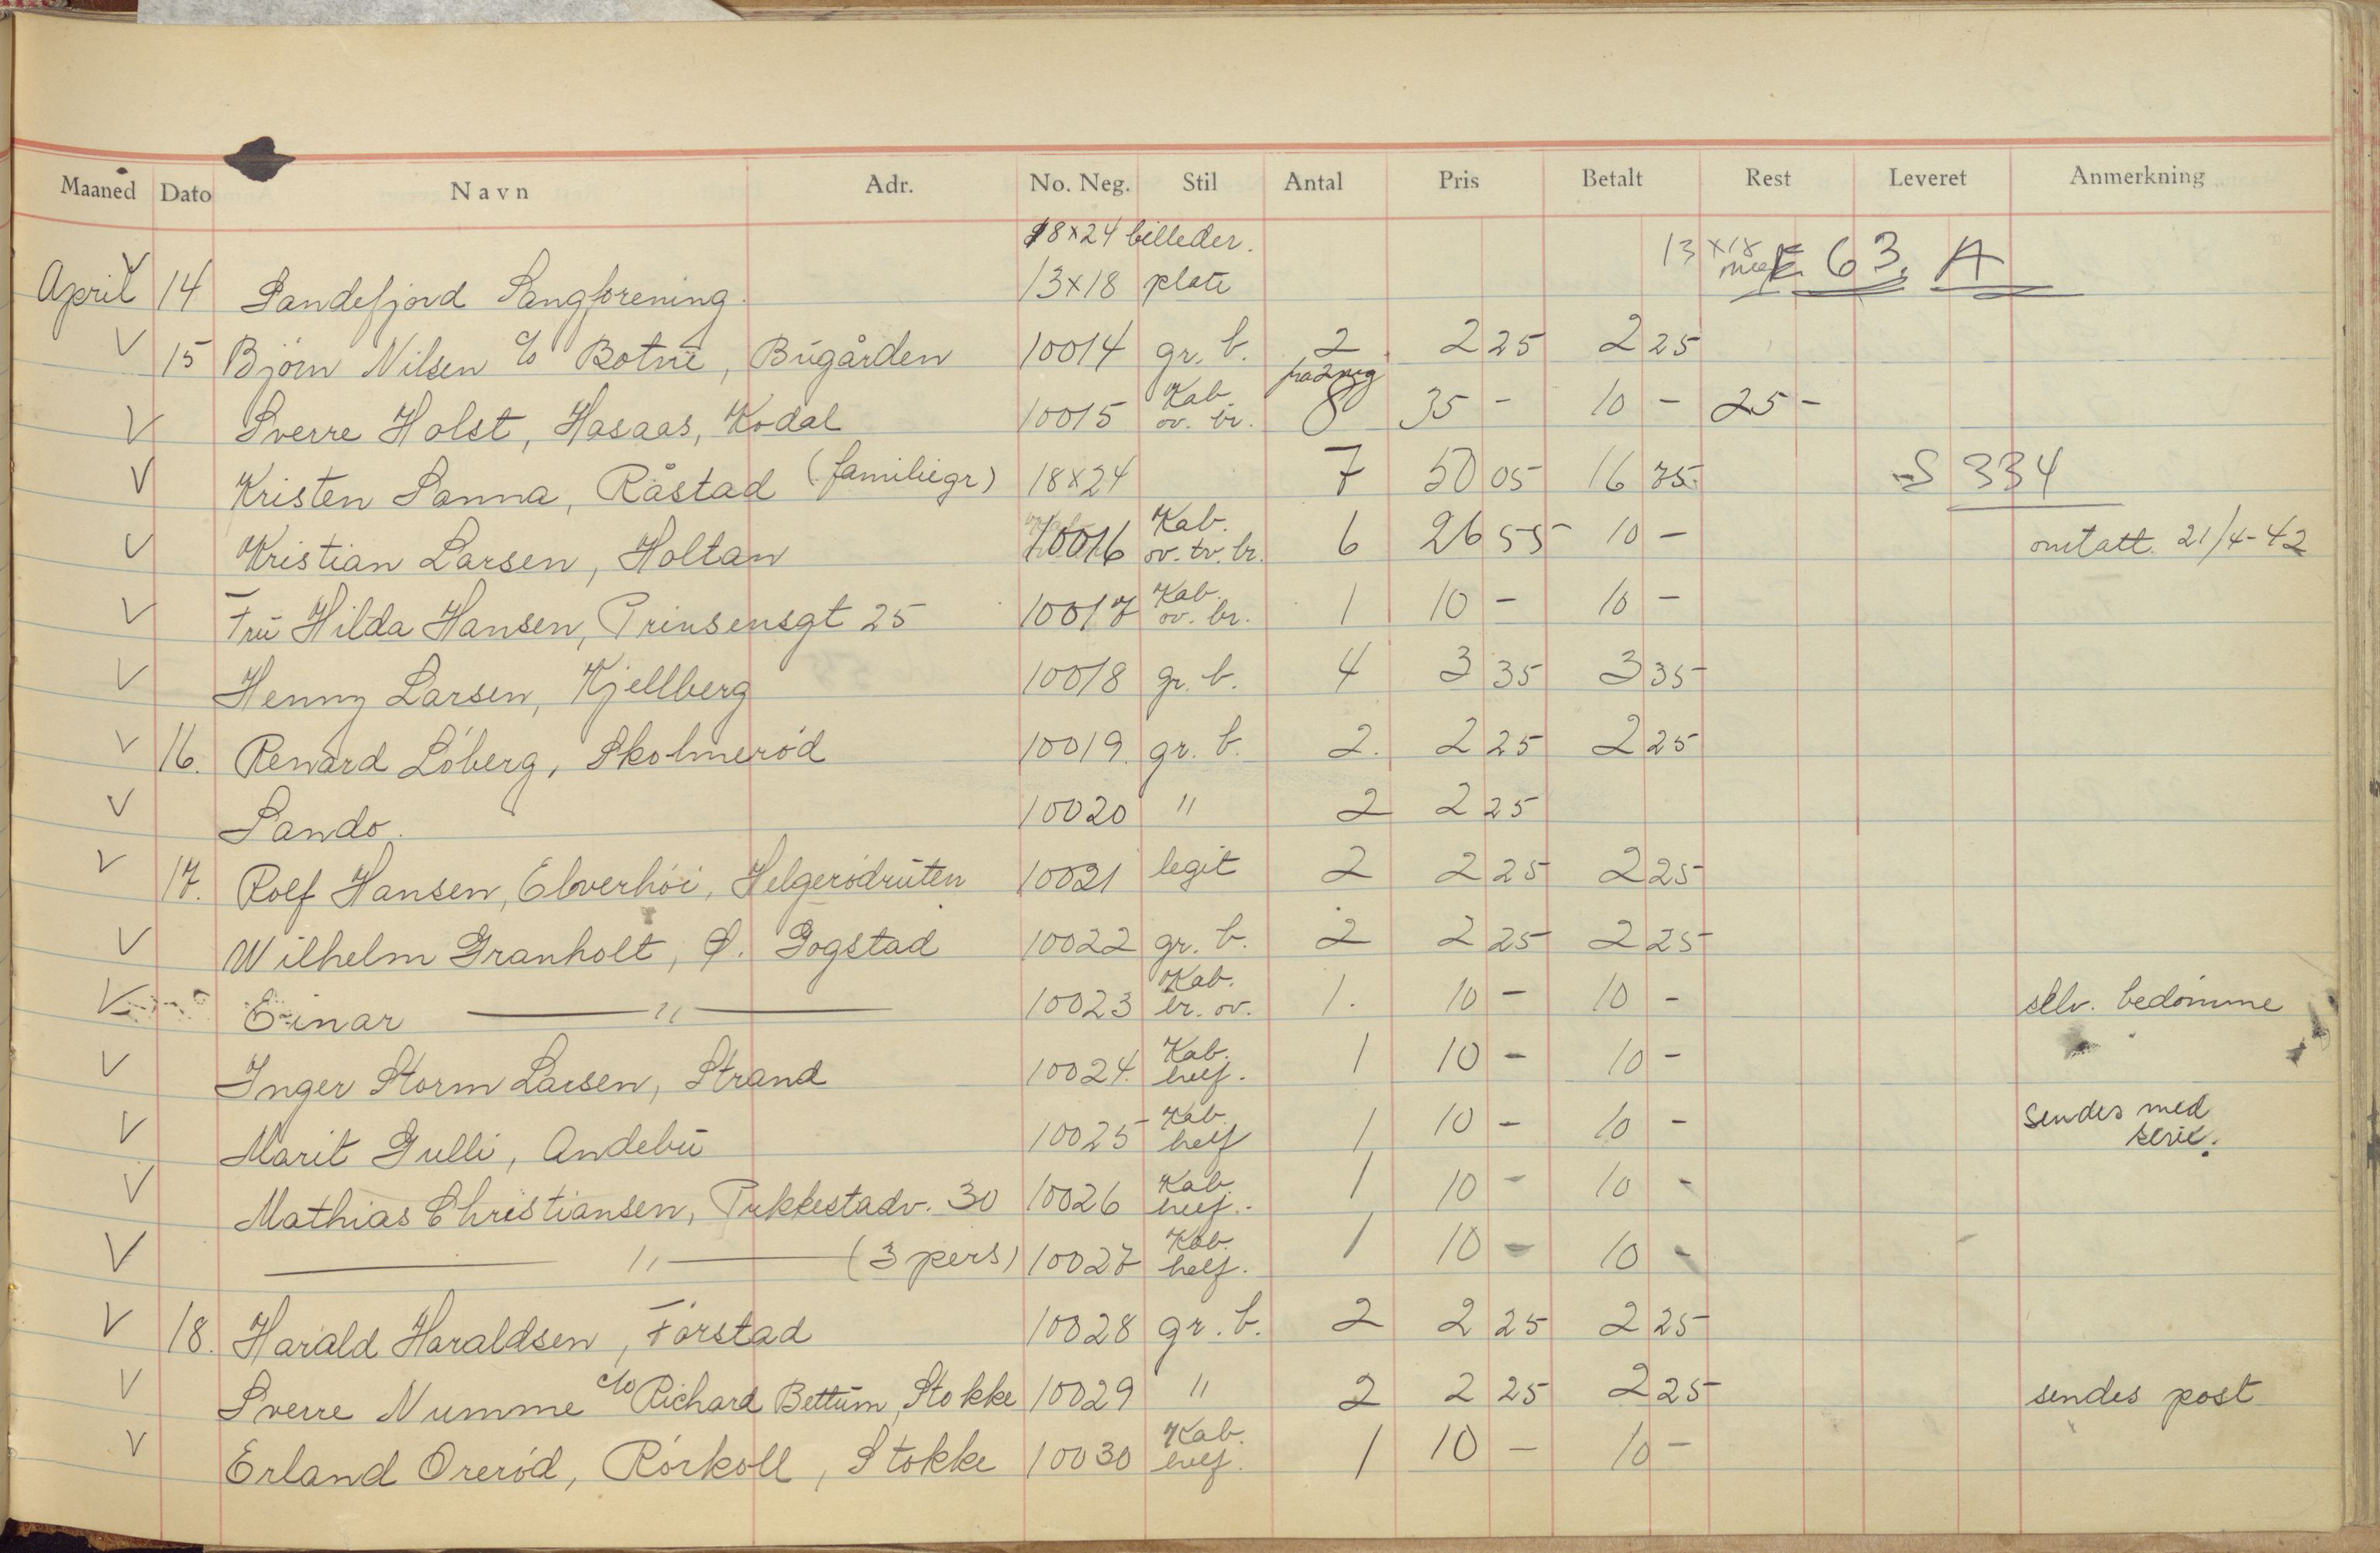 Maaned Dato Navn Adr. No. Neg. Stil Antal Pris Betalt Rest Leveret Anmerkning
18x24 billeder.
April 14 Sandefjord Sangforening 13x18 plate 13x18 F 63, A
15 Björn Nilsen c/o Botne, Bugården 10014 gr. b. 2 2 25 2 25
Sverre Holst, Hasaas, Kodal 10015 Kab. ov. br. fra 2 neg 8 35 - 10 - 25 -
Kristen Sanna, Råstad (familiegr) 18x24 7 50 05 16 75 S 334
Kristian Larsen, Holtan 10016 Kab. ov. tv. br. 6 26 55 10 - omtatt. 21/4-42
Fru Hilda Hansen, Prinsensgt 25 10017 Kab. ov. br. 1 10 - 10 -
Henny Larsen, Kjellberg 10018 gr. b. 4 3 35 3 35
16. Renard Löberg, Skolmeröd 10019 gr. b. 2. 2 25 2 25
Sando. 10020 " 2 2 25
17. Rolf Hansen, Elverhöi, Helgerödruten 10021 legit 2 2 25 2 25
Wilhelm Granholt, Ø. Gogstad 10022 gr. b. 2 2 25 2 25
Einar — " — 10023 Kab. br. ov. 1. 10 - 10 - selv. bedömme
Inger Storm Larsen, Strand 10024 Kab. helf. 1 10 - 10 -
Marit Gulli, Andebu 10025 Kab. helf 1 10 - 10 - Sendes med
serie.
Mathias Christiansen, Pukkestadv. 30 10026 Kab. helf. 1 10 - 10 -
— " — (3 pers) 10027 Kab. helf. 1 10 - 10 -
18. Harald Haraldsen, Forstad 10028 gr. b. 2 2 25 2 25
Sverre Numme c/o Richard Bettum, Stokke 10029 " 2 2 25 2 25 sendes post
Erland Oreröd, Rörkoll, Stokke 10030 Kab. helf. 1 10 - 10 -